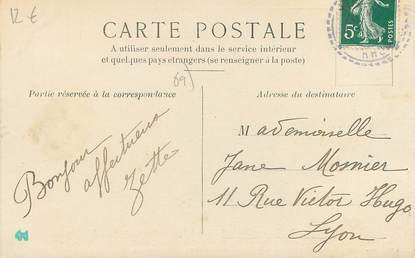 12 €
CARTE POSTALE
A utiliser seulement dans le service intérieur
et quelques pays etrangers (se renseigner à la poste)
(69)
Partie réservée à la correspondance
Adresse du destinataire
5c
POSTES
Bonjour
affectueux
Zette
Mademoiselle
Jane Mosnier
11 Rue Victor Hugo
Lyon